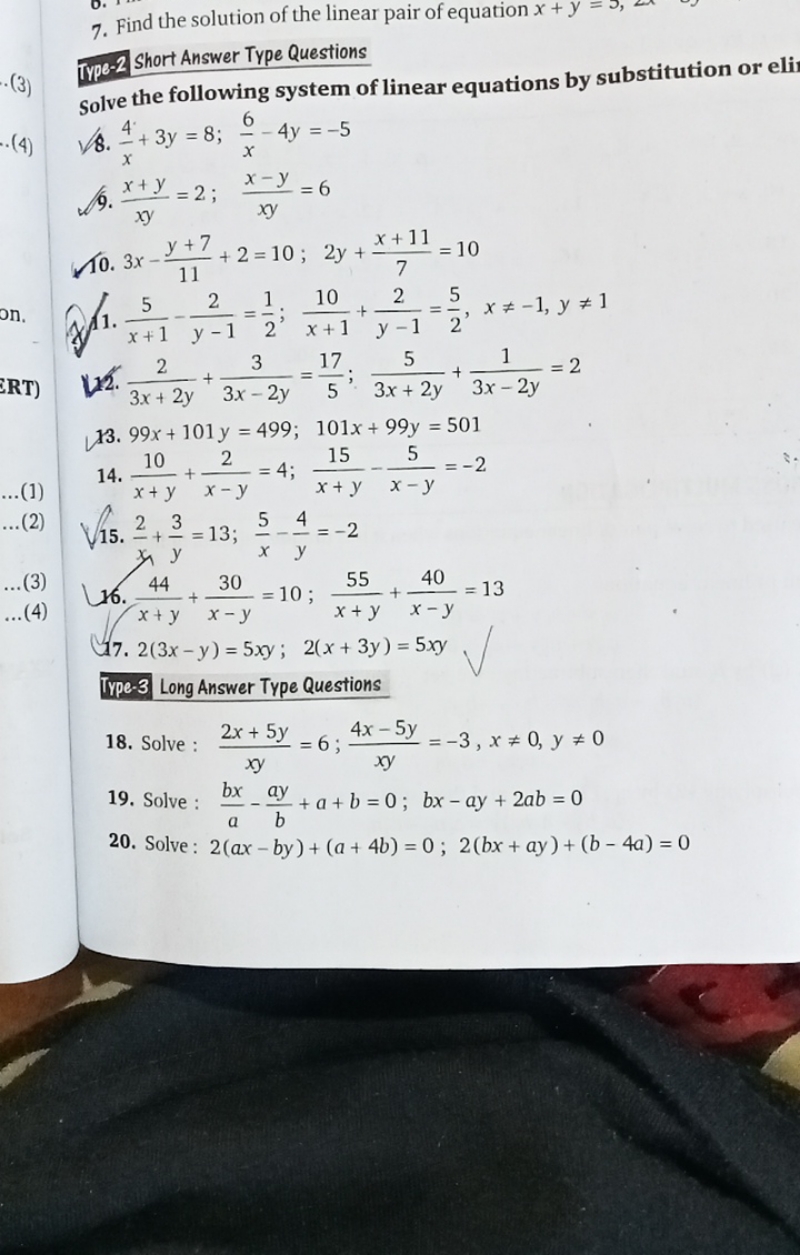 7. Find the solution of the linear pair of equation x + y = 5,
Type-2 Short Answer Type Questions
..(3)
Solve the following system of linear equations by substitution or
..(4)
8. 4/x + 3y = 8; 6/x − 4y = −5
9. (x + y)/xy = 2; (x − y)/xy = 6
10. 3x − (y + 7)/11 + 2 = 10; 2y + (x + 11)/7 = 10
on.
11. 5/(x + 1) − 2/(y − 1) = 1/2; 10/(x + 1) + 2/(y − 1) = 5/2, x ≠ −1, y ≠ 1
ERT)
12. 2/(3x + 2y) + 3/(3x − 2y) = 17/5; 5/(3x + 2y) + 1/(3x − 2y) = 2
13. 99x + 101y = 499; 101x + 99y = 501
14. 10/(x + y) + 2/(x − y) = 4; 15/(x + y) − 5/(x − y) = −2
...(1)
...(2)
15. 2/x + 3/y = 13; 5/x − 4/y = −2
...(3)
16. 44/(x + y) + 30/(x − y) = 10; 55/(x + y) + 40/(x − y) = 13
...(4)
17. 2(3x − y) = 5xy; 2(x + 3y) = 5xy
Type-3 Long Answer Type Questions
18. Solve : (2x + 5y)/xy = 6; (4x − 5y)/xy = −3, x ≠ 0, y ≠ 0
19. Solve : bx/a − ay/b + a + b = 0; bx − ay + 2ab = 0
20. Solve : 2(ax − by) + (a + 4b) = 0; 2(bx + ay) + (b − 4a) = 0